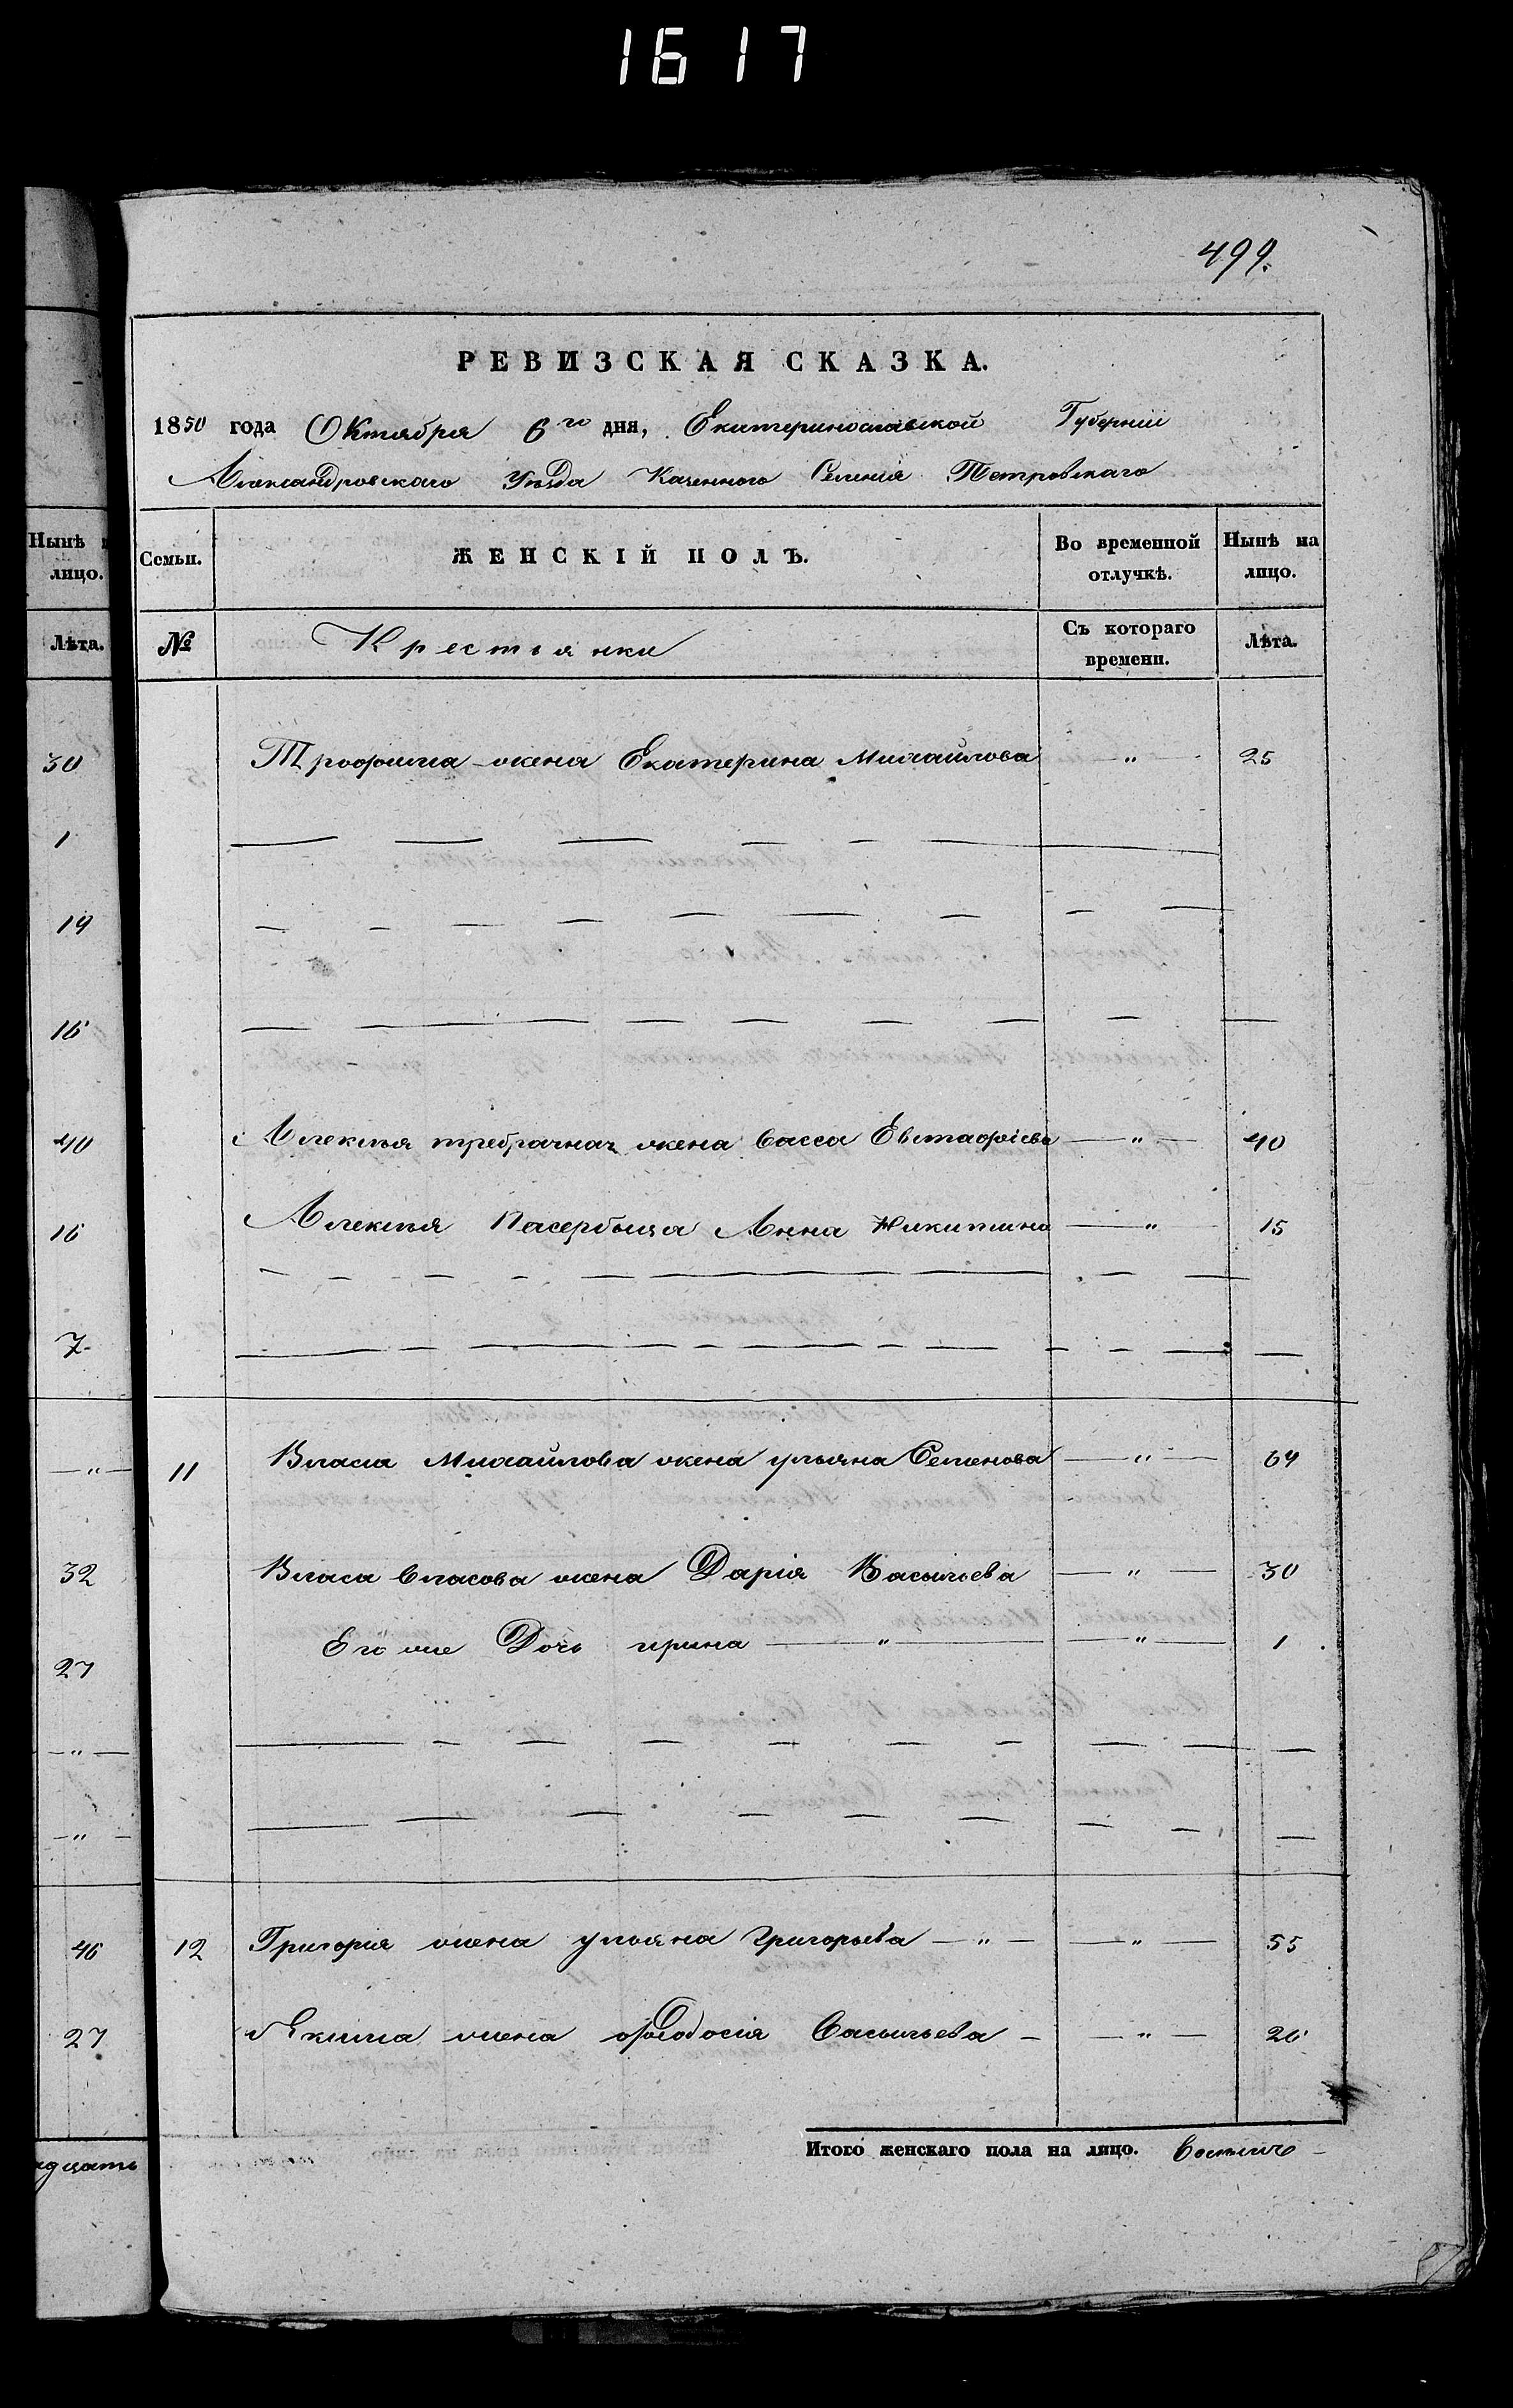 1617
499.
РЕВИЗСКАЯ СКАЗКА.
1850 года Октября 6го дня, Екатеринославской Губерніи
Александровскаго Уезда Казенного Селенія Петровскаго
Нынѣ
лицо.
Лѣта.
Семьи.
ЖЕНСКІЙ ПОЛЪ.
Во временной отлучкѣ.
Нынѣ на лицо.
№
Крестьянки
Съ котораго времени.
Лѣта.
30 Трофима жена Екатерина Михайлова — " — 25
1
19
16
40 Алексея требрачная жена Васса Евстафіева — " — 40
16 Алексея Пасербица Анна Никитина — " — 15
7
— " — 11 Власа Михайлова жена ульяна Семенова — " — 64
32 Власа Власова жена Дарія Васильева — " — 30
Его же Дочь ирина — " — — " — 1
27
— " —
— " —
46 12 Григорія жена ульяна Григорьева — " — — " — 55
27 Екима жена феодосія Васильева — — " — 26
Итого женскаго пола на лицо. восемь
дцать